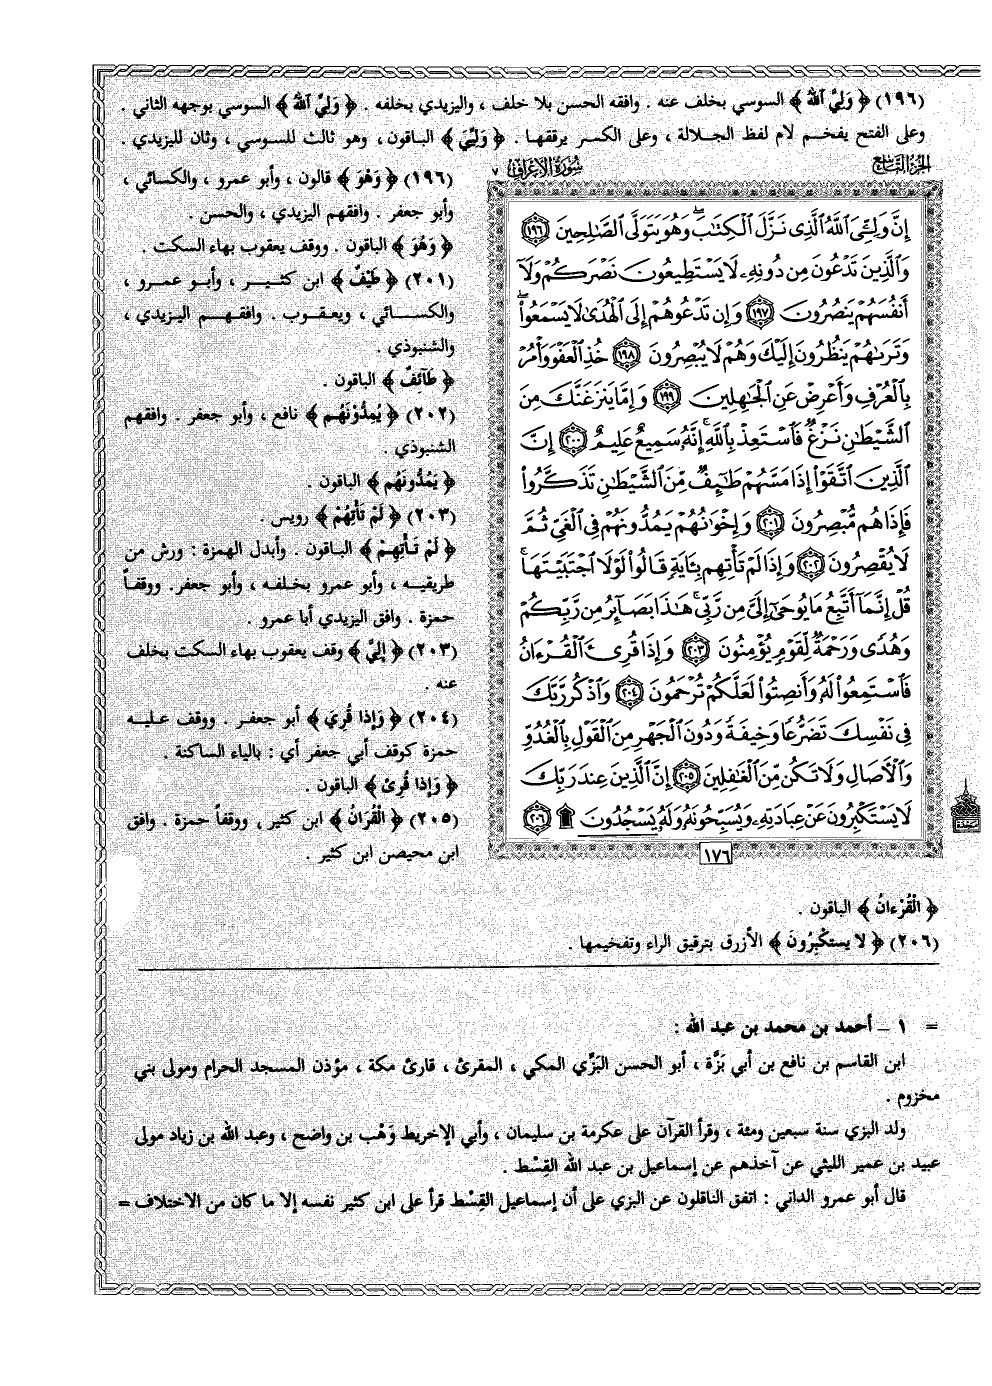 (١٩٦) ﴿ وَلِيَّ ٱللهُ ﴾ السوسي بخلف عنه . وافقه الحسن بلا خلف ، واليزيدي بخلفه . ﴿ وَلِيِّ ٱللهُ ﴾ السوسي بوجهه الثاني .
وعلى الفتح يفخم لام لفظ الجلالة ، وعلى الكسر يرققها . ﴿ وَلِـِّيَ ﴾ الباقون ، وهو ثالث للسوسي ، وثان لليزيدي .
الجزء التاسع
سورة الأعراف ٧
إِنَّ وَلِـِّۧيَ ٱللَّهُ ٱلَّذِى نَزَّلَ ٱلْكِتَٰبَ ۖ وَهُوَ يَتَوَلَّى ٱلصَّٰلِحِينَ ١٩٦
وَٱلَّذِينَ تَدْعُونَ مِن دُونِهِۦ لَا يَسْتَطِيعُونَ نَصْرَكُمْ وَلَآ
أَنفُسَهُمْ يَنصُرُونَ ١٩٧ وَإِن تَدْعُوهُمْ إِلَى ٱلْهُدَىٰ لَا يَسْمَعُوا۟ ۖ
وَتَرَىٰهُمْ يَنظُرُونَ إِلَيْكَ وَهُمْ لَا يُبْصِرُونَ ١٩٨ خُذِ ٱلْعَفْوَ وَأْمُرْ
بِٱلْعُرْفِ وَأَعْرِضْ عَنِ ٱلْجَٰهِلِينَ ١٩٩ وَإِمَّا يَنزَغَنَّكَ مِنَ
ٱلشَّيْطَٰنِ نَزْغٌ فَٱسْتَعِذْ بِٱللَّهِ ۚ إِنَّهُۥ سَمِيعٌ عَلِيمٌ ٢٠٠ إِنَّ
ٱلَّذِينَ ٱتَّقَوْا۟ إِذَا مَسَّهُمْ طَٰٓئِفٌ مِّنَ ٱلشَّيْطَٰنِ تَذَكَّرُوا۟
فَإِذَا هُم مُّبْصِرُونَ ٢٠١ وَإِخْوَٰنُهُمْ يَمُدُّونَهُمْ فِى ٱلْغَىِّ ثُمَّ
لَا يُقْصِرُونَ ٢٠٢ وَإِذَا لَمْ تَأْتِهِم بِـَٔايَةٍ قَالُوا۟ لَوْلَا ٱجْتَبَيْتَهَا ۚ
قُلْ إِنَّمَآ أَتَّبِعُ مَا يُوحَىٰٓ إِلَىَّ مِن رَّبِّى ۚ هَٰذَا بَصَآئِرُ مِن رَّبِّكُمْ
وَهُدًى وَرَحْمَةٌ لِّقَوْمٍ يُؤْمِنُونَ ٢٠٣ وَإِذَا قُرِئَ ٱلْقُرْءَانُ
فَٱسْتَمِعُوا۟ لَهُۥ وَأَنصِتُوا۟ لَعَلَّكُمْ تُرْحَمُونَ ٢٠٤ وَٱذْكُر رَّبَّكَ
فِى نَفْسِكَ تَضَرُّعًا وَخِيفَةً وَدُونَ ٱلْجَهْرِ مِنَ ٱلْقَوْلِ بِٱلْغُدُوِّ
وَٱلْءَاصَالِ وَلَا تَكُن مِّنَ ٱلْغَٰفِلِينَ ٢٠٥ إِنَّ ٱلَّذِينَ عِندَ رَبِّكَ
لَا يَسْتَكْبِرُونَ عَنْ عِبَادَتِهِۦ وَيُسَبِّحُونَهُۥ وَلَهُۥ يَسْجُدُونَ ۩ ٢٠٦
١٧٦
(١٩٦) ﴿ وَهْوَ ﴾ قالون ، وأبو عمرو ، والكسائي ،
وأبو جعفر . وافقهم اليزيدي ، والحسن .
﴿ وَهُوَ ﴾ الباقون . ووقف يعقوب بهاء السكت .
(٢٠١) ﴿ طَيْفٌ ﴾ ابن كثير ، وأبو عمرو ،
والكسائي ، ويعقوب . وافقهم اليزيدي ،
والشنبوذي .
﴿ طَآئِفٌ ﴾ الباقون .
(٢٠٢) ﴿ يُمِدُّونَهُم ﴾ نافع ، وأبو جعفر . وافقهم
الشنبوذي .
﴿ يَمُدُّونَهُم ﴾ الباقون .
(٢٠٣) ﴿ لَمْ تَأْتِهُمْ ﴾ رويس .
﴿ لَمْ تَأْتِهِمْ ﴾ الباقون . وأبدل الهمزة : ورش من
طريقيه ، وأبو عمرو بخلفه ، وأبو جعفر. ووقفاً
حمزة . وافق اليزيدي أبا عمرو .
(٢٠٣) ﴿ إِلَيَّ ﴾ وقف يعقوب بهاء السكت بخلف
عنه .
(٢٠٤) ﴿ وَإِذا قُرِيَ ﴾ أبو جعفر . ووقف عليه
حمزة كوقف أبي جعفر أي : بالياء الساكنة .
﴿ وَإِذا قُرِئ ﴾ الباقون .
(٢٠٥) ﴿ الْقُرَانُ ﴾ ابن كثير ، ووقفاً حمزة . وافق
ابن محيصن ابن كثير .
﴿ الْقُرْءانُ ﴾ الباقون .
(٢٠٦) ﴿ لا يستكْبِرُونَ ﴾ الأزرق بترقيق الراء وتفخيمها .
= ١ - أحمد بن محمد بن عبد الله :
ابن القاسم بن نافع بن أبي بَزَّة ، أبو الحسن البَزِّي المكي ، المقرئ ، قارئ مكة ، مؤذن المسجد الحرام ومولى بني
مخزوم .
ولد البزي سنة سبعين ومئة ، وقرأ القرآن على عكرمة بن سليمان ، وأبي الإخريط وَهْب بن واضح ، وعبد الله بن زياد مولى
عبيد بن عمير الليثي عن آخذهم عن إسماعيل بن عبد الله القِسْط .
قال أبو عمرو الداني : اتفق الناقلون عن البزي على أن إسماعيل القِسْط قرأ على ابن كثير نفسه إلا ما كان من الاختلاف =